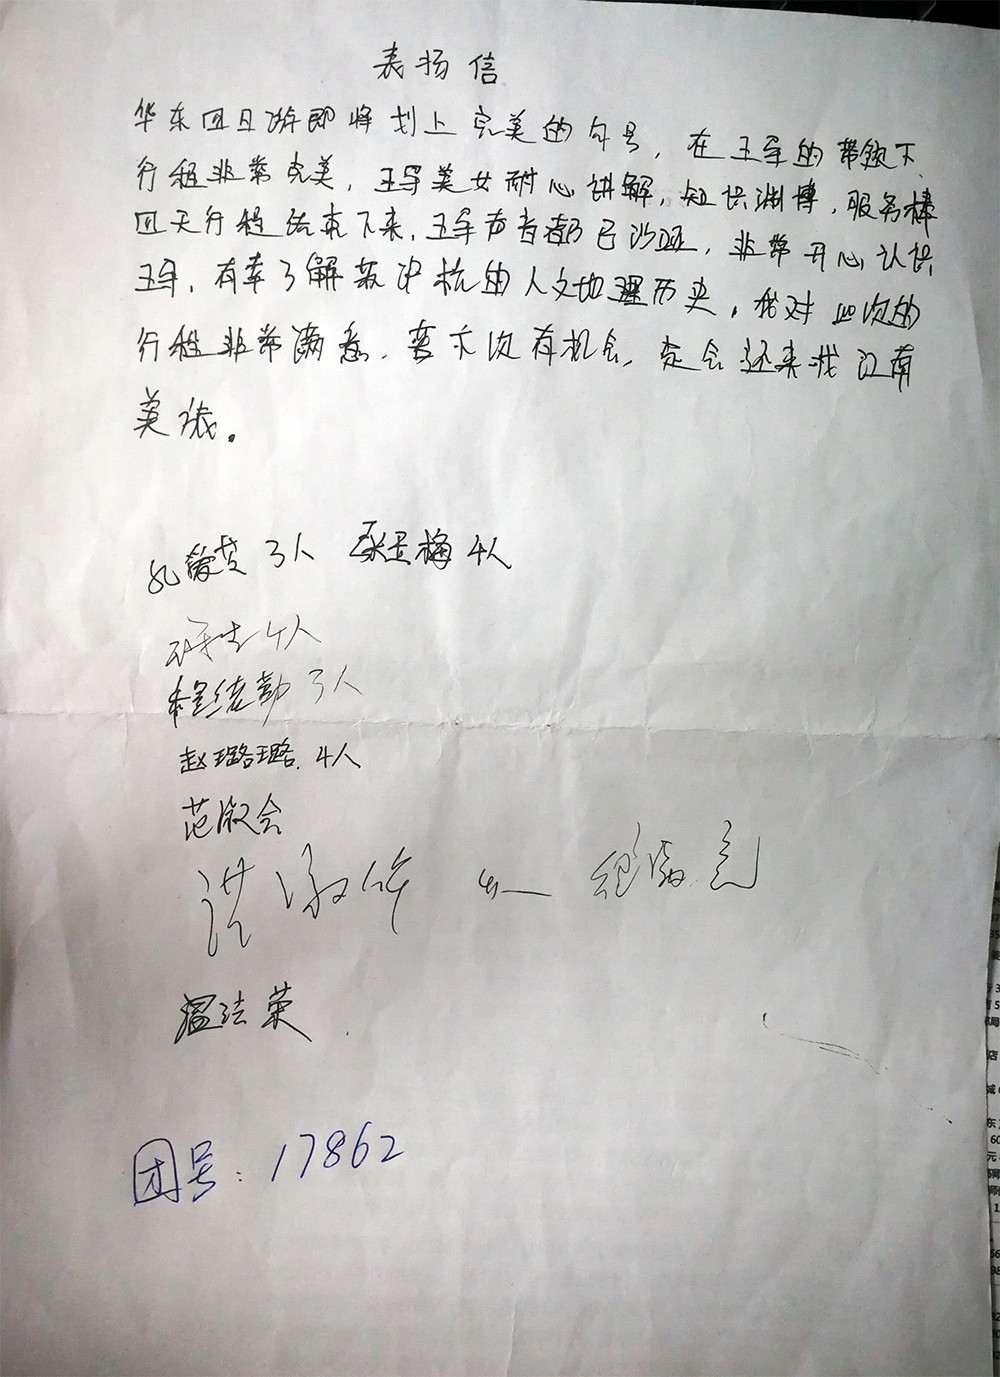 表扬信
华东四日游即将划上完美的句号，在王导的带领下，
行程非常完美，王导美女耐心讲解，知识渊博，服务棒
四天行程结束下来，王导声音都已沙哑，非常开心认识
王导，有幸了解苏沪杭的人文地理历史，我对此次的
行程非常满意，要下次有机会，定会还来我江南
美哉。
孔 3人 梅 4人
4人
程 勤 3人
赵璐璐 4人
范淑会
洪淑
温洁荣
团号：17862